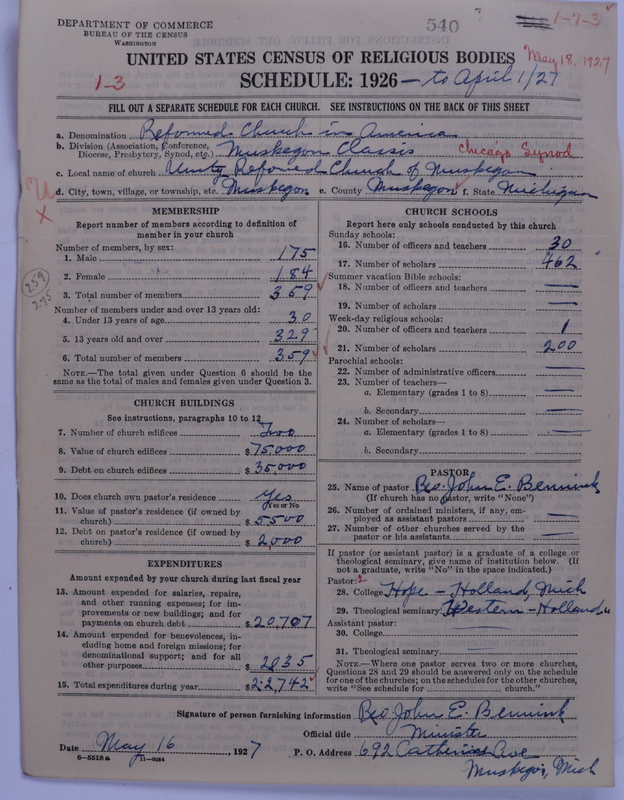 DEPARTMENT OF COMMERCE
BUREAU OF THE CENSUS
WASHINGTON
540
1-7-3
UNITED STATES CENSUS OF RELIGIOUS BODIES
May 18, 1927
1-3
SCHEDULE: 1926 — to April 1/27
FILL OUT A SEPARATE SCHEDULE FOR EACH CHURCH. SEE INSTRUCTIONS ON THE BACK OF THIS SHEET
a. Denomination Reformed Church in America
b. Division (Association, Conference, Diocese, Presbytery, Synod, etc.) Muskegon Classis Chicago Synod
c. Local name of church Unity Reformed Church of Muskegon
d. City, town, village, or township, etc. Muskegon e. County Muskegon f. State Michigan
X
259
295
MEMBERSHIP
Report number of members according to definition of
member in your church
Number of members, by sex:
1. Male 175
2. Female 184
3. Total number of members 359
Number of members under and over 13 years old:
4. Under 13 years of age 30
5. 13 years old and over 329
6. Total number of members 359
NOTE.—The total given under Question 6 should be
the same as the total of males and females given under Question 3.
CHURCH BUILDINGS
See instructions, paragraphs 10 to 12
7. Number of church edifices Two
8. Value of church edifices $ 75,000
9. Debt on church edifices $ 35,000
10. Does church own pastor's residence Yes
Yes or No
11. Value of pastor's residence (if owned by
church) $ 5500
12. Debt on pastor's residence (if owned by
church) $ 2,000
EXPENDITURES
Amount expended by your church during last fiscal year
13. Amount expended for salaries, repairs,
and other running expenses; for im-
provements or new buildings; and for
payments on church debt $ 20,707
14. Amount expended for benevolences, in-
cluding home and foreign missions; for
denominational support; and for all
other purposes $ 2035
15. Total expenditures during year $ 22,742
CHURCH SCHOOLS
Report here only schools conducted by this church
Sunday schools:
16. Number of officers and teachers 30
17. Number of scholars 462
Summer vacation Bible schools:
18. Number of officers and teachers —
19. Number of scholars —
Week-day religious schools:
20. Number of officers and teachers 1
21. Number of scholars 200
Parochial schools:
22. Number of administrative officers —
23. Number of teachers—
a. Elementary (grades 1 to 8) —
b. Secondary —
24. Number of scholars—
a. Elementary (grades 1 to 8) —
b. Secondary —
PASTOR
25. Name of pastor Rev. John E. Bennink
(If church has no pastor, write "None")
26. Number of ordained ministers, if any, em-
ployed as assistant pastors —
27. Number of other churches served by the
pastor or his assistants —
If pastor (or assistant pastor) is a graduate of a college or
theological seminary, give name of institution below. (If
not a graduate, write "No" in the space indicated.)
Pastor: 2
28. College Hope - Holland, Mich
29. Theological seminary Western - Holland
Assistant pastor:
30. College —
31. Theological seminary —
NOTE.—Where one pastor serves two or more churches,
Questions 28 and 29 should be answered only on the schedule
for one of the churches; on the schedules for the other churches,
write "See schedule for church."
Signature of person furnishing information Rev John E. Bennink
Official title Minister
Date May 16, 1927 P. O. Address 692 Catherine Ave
8—5518a 11—9064
Muskegon, Mich